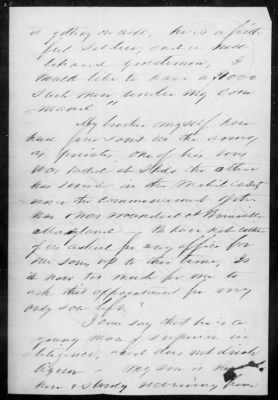 is getting on well, he is a faith
ful Soldier, and a well
behaved Gentleman, I
would like to have a 1000
such men under my Com
mand"
My brother & myself have
had four sons in the army
as privates, one of his sons
was killed at the other
has served in the
since the commencement of the
war & was wounded at
We have not either
of us asked for any office for
our sons up to this time, Is
it now too much for me to
ask this appointment for my
only son left.
I can say that he is a
young man of superior in
telligence, and does not drink
liquor — My son is now
here & slowly recovering from